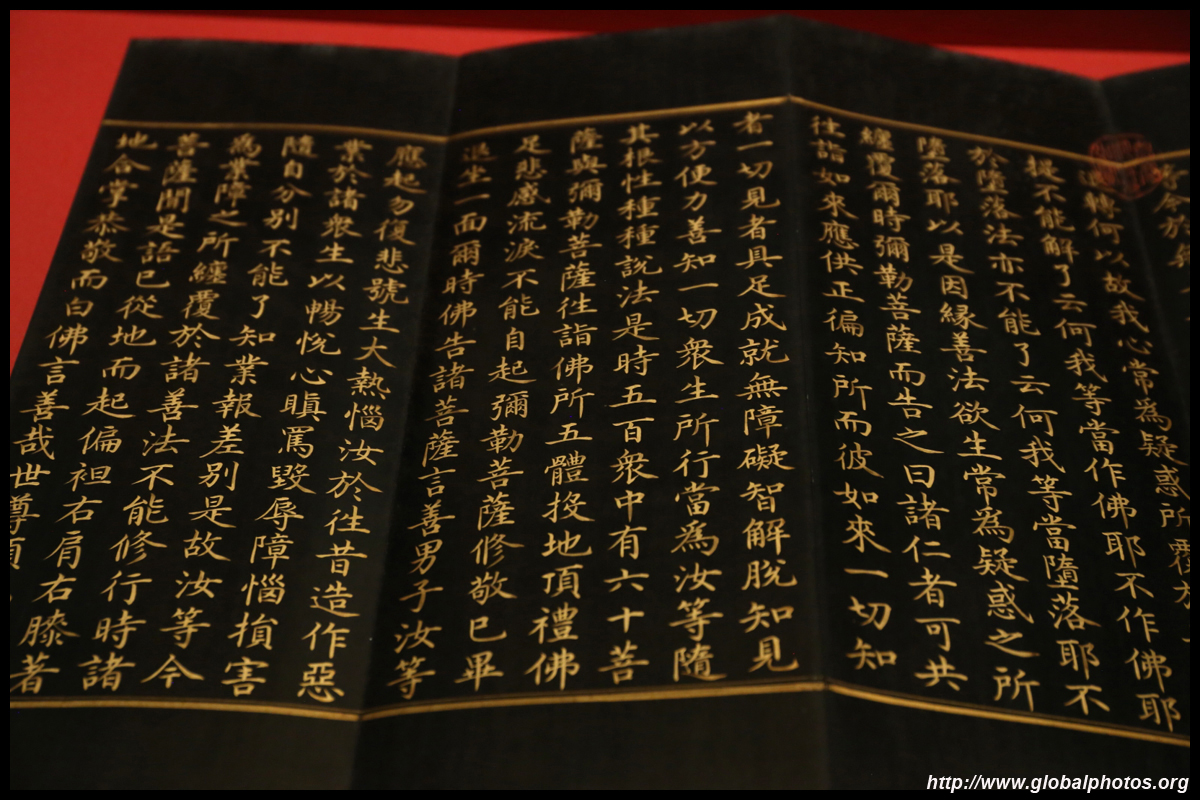 轉何以故我心常為疑惑所覆
提不能解了云何我等當作佛耶不作佛耶
於墮落法亦不能了云何我等當墮落耶不
墮落耶以是因緣善法欲生常為疑惑之所
纏覆爾時彌勒菩薩而告之曰諸仁者可共
往詣如來應供正徧知所而彼如來一切知
者一切見者具足成就無障礙智解脫知見
以方便力善知一切眾生所行當為汝等隨
其根性種種說法是時五百眾中有六十菩
薩與彌勒菩薩往詣佛所五體投地頂禮佛
足悲感流淚不能自起彌勒菩薩修敬已畢
退坐一面爾時佛告諸菩薩言善男子汝等
應起勿復悲號生大熱惱汝於往昔造作惡
業於諸眾生以暢悅心瞋罵毀辱障惱損害
隨自分別不能了知業報差別是故汝等今
為業障之所纏覆於諸善法不能修行時諸
菩薩聞是語已從地而起偏袒右肩右膝著
地合掌恭敬而白佛言善哉世尊
http://www.globalphotos.org